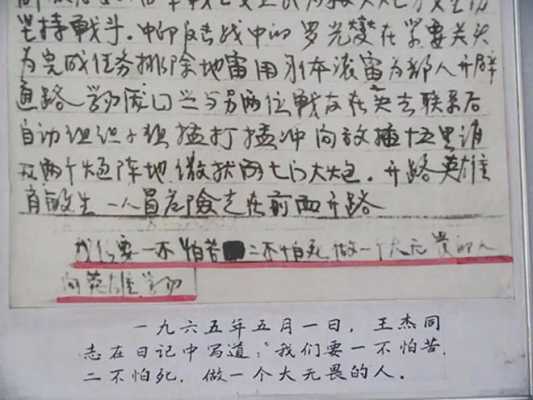 坚持战斗.中印反击战中的罗光燮在紧要关头
为完成任务排除地雷用身体滚雷为部人开辟
通路 学习庞国兴与另两位战友在失去联系后
自动组织小组猛打猛冲向敌插十五里进
及两个炮阵地缴获敌七门大炮.开路英雄
肖敏生一人冒危险走在前面开路
我们要一不怕苦二不怕死做一个大无畏的人
向英雄学习
一九六五年五月一日,王杰同
志在日记中写道:“我们要一不怕苦.
二不怕死.做一个大无畏的人.